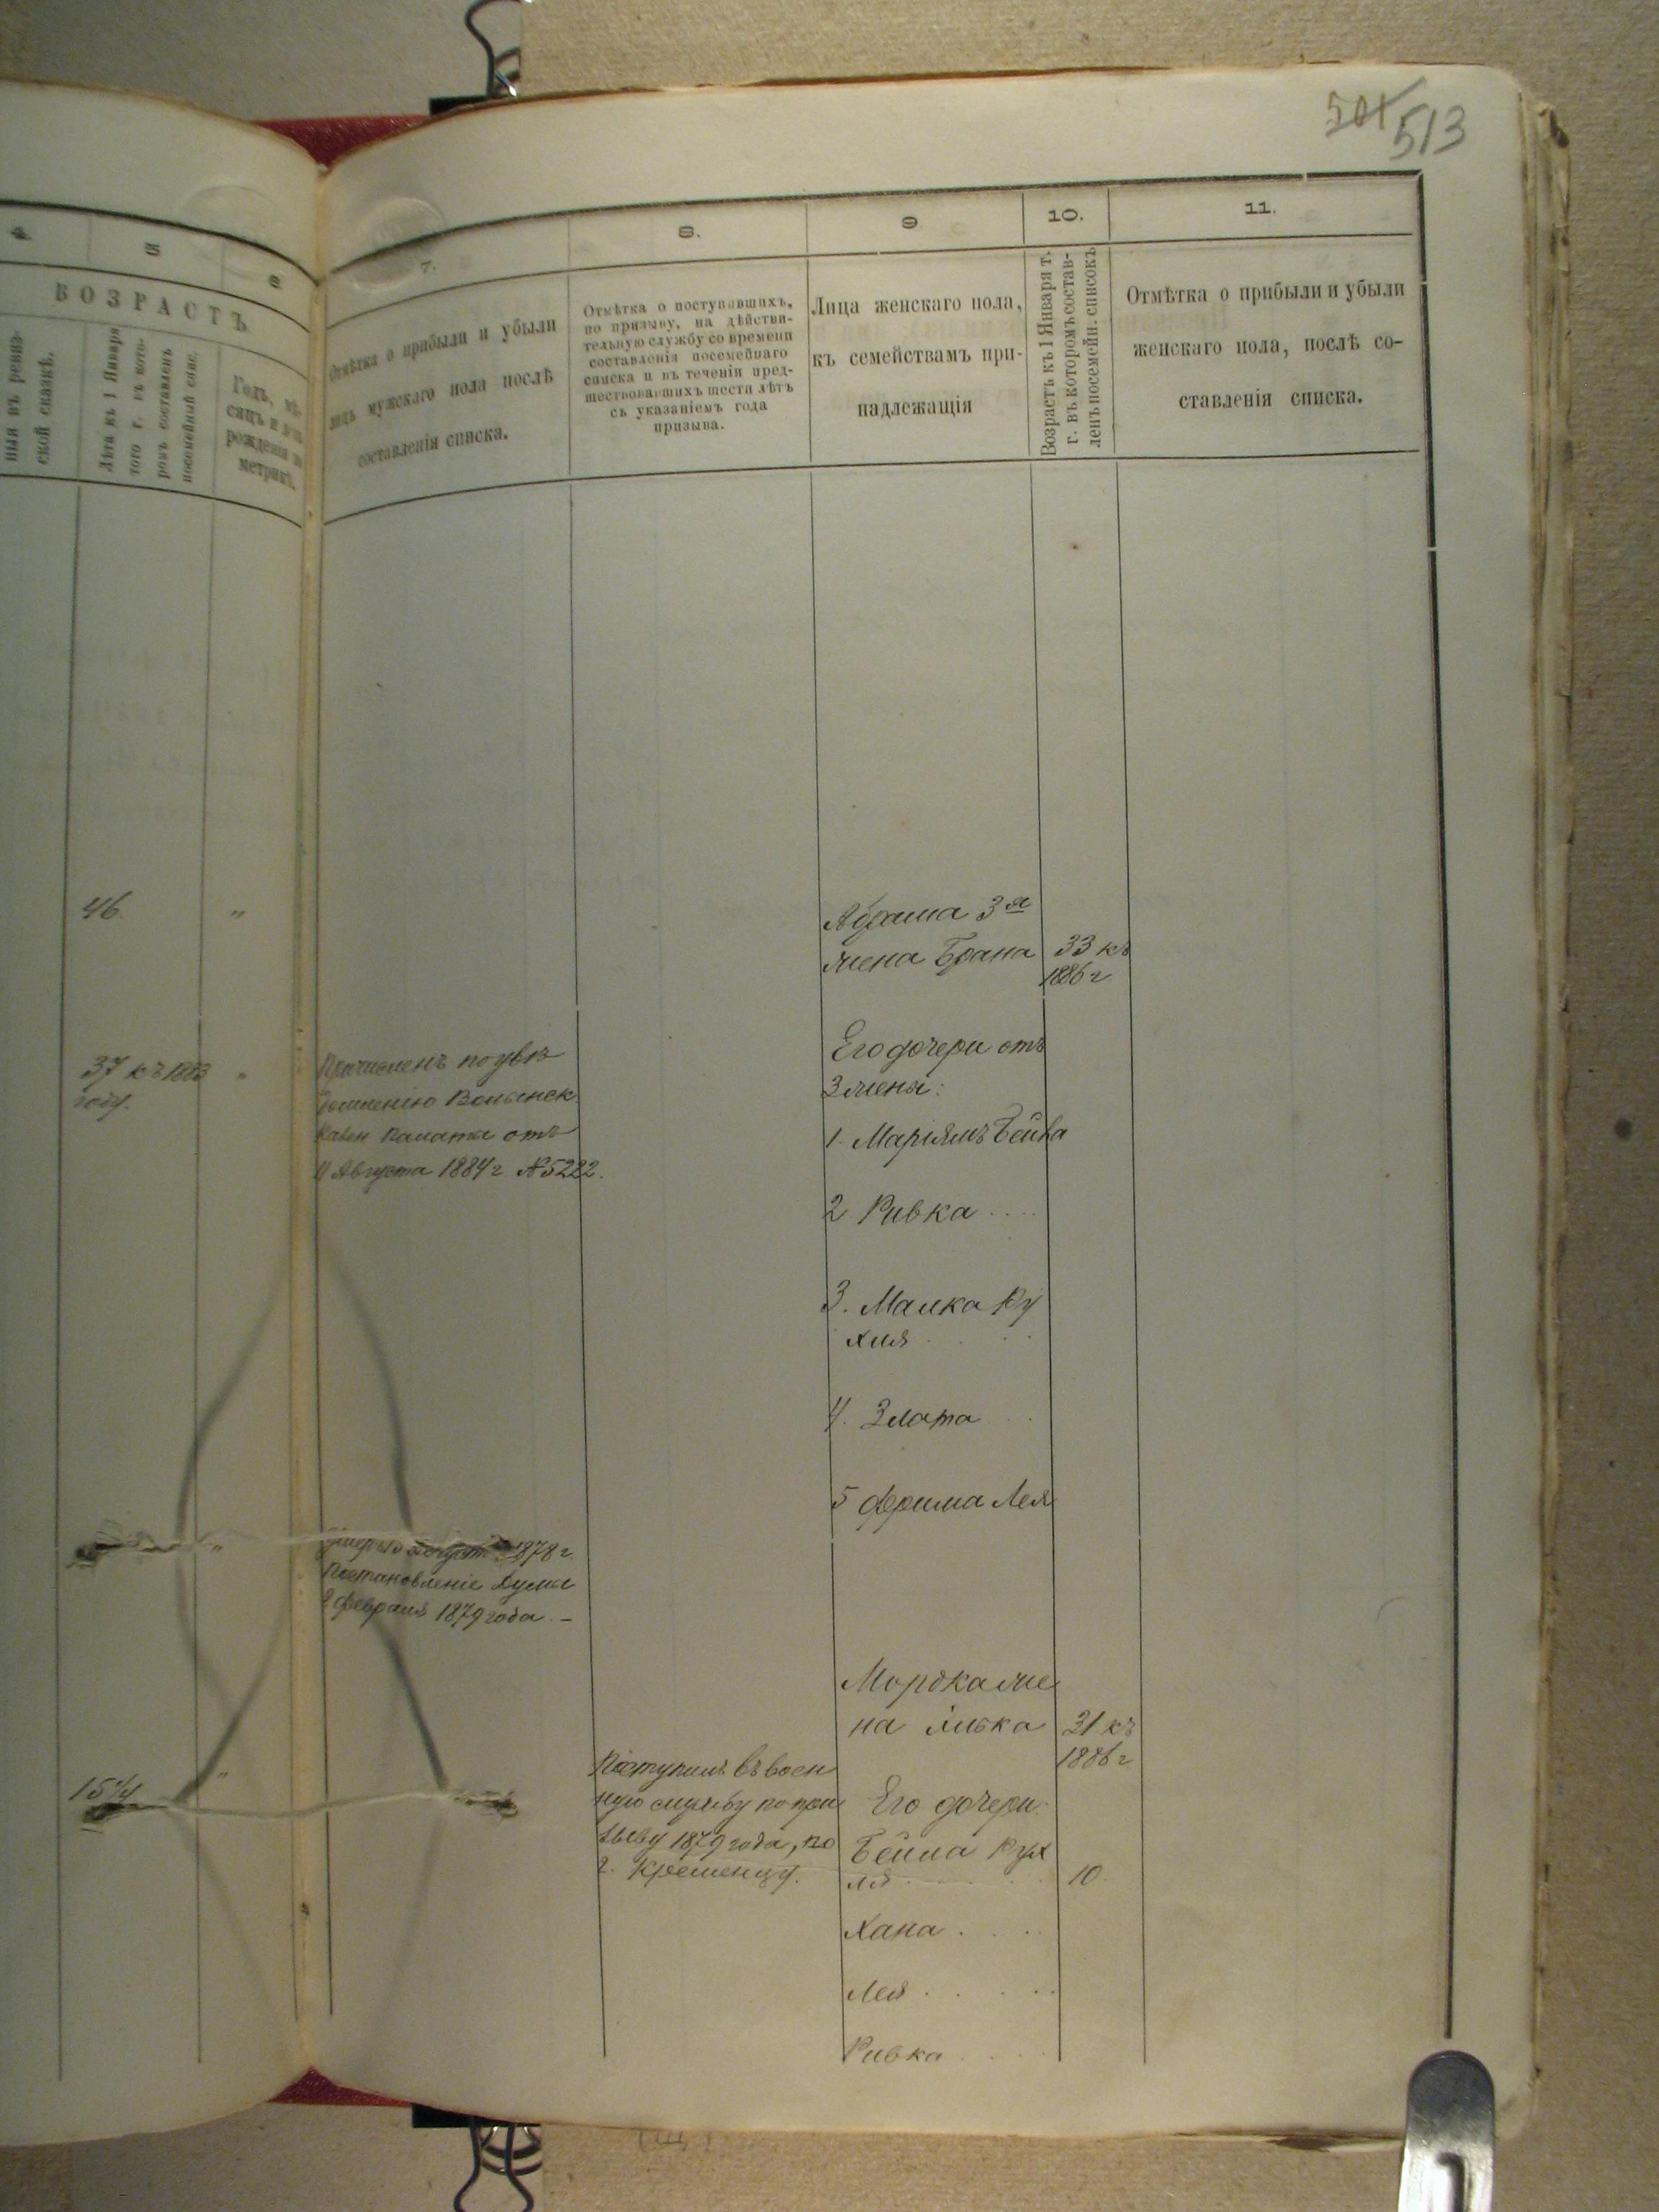 501 513
4
5
6
7.
8.
9
10.
11.
ВОЗРАСТЪ
ныя въ ревиз-
ской сказкѣ.
Лѣта къ 1 Января
того г. въ кото-
ромъ составленъ
посемейный спис.
Годъ, мѣ-
сяцъ и день
рожденія по
метрикѣ.
Отмѣтка о прибыли и убыли
лицъ мужскаго пола послѣ
составленія списка.
Отмѣтка о поступавшихъ,
по призыву, на дѣйстви-
тельную службу со времени
составленія посемейнаго
списка и въ теченіи пред-
шествовавшихъ шести лѣтъ
съ указаніемъ года
призыва.
Лица женскаго пола,
къ семействамъ при-
надлежащія
Возрастъ къ 1 Января т.
г. въ которомъ состав-
ленъ посемейн. списокъ
Отмѣтка о прибыли и убыли
женскаго пола, послѣ со-
ставленія списка.
46. "
Абрама 3я
жена Брана 33 къ
1886 г.
37 къ 1883 "
году.
Причисленъ по увѣ
домленію Волынск
Казен Палаты отъ
11 Августа 1884 г №5282.
Его дочери отъ
3 жены:
1. Маріямъ Бейла
2 Ривка
3. Малка Ру
хля
4. Злата
5 Фрима Лея
"
Умеръ 1878 г.
Постановленіе Думы
2 февраля 1879 года. –
Мордка же
на Ливка 31 къ
1886 г
15¼ "
Поступилъ въ воен
ную службу по при
зыву 1879 года, по
г. Кременцу.
Его дочери:
Бейла Рух
ля 10.
Хана
Лея
Ривка